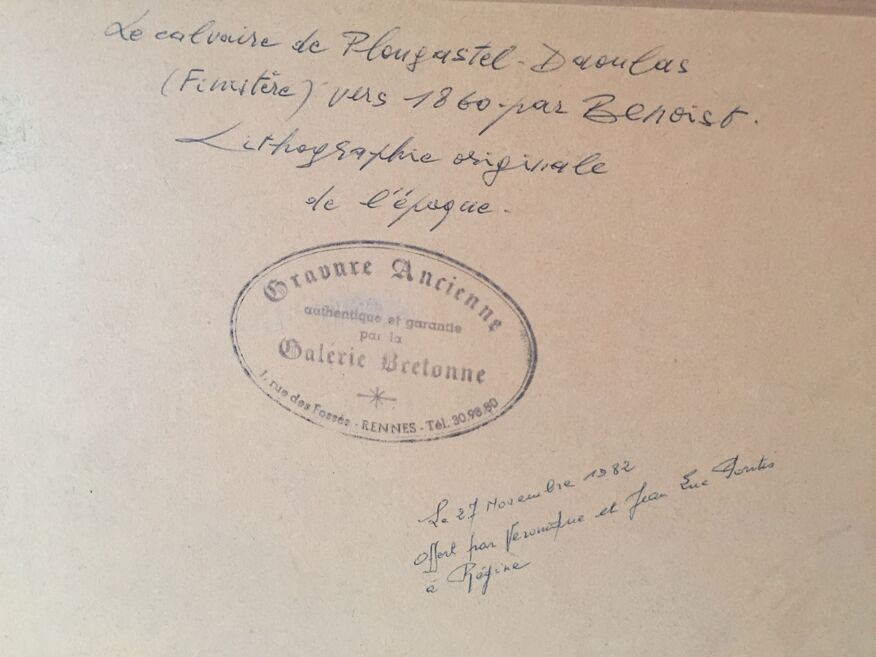 Le calvaire de Plougastel-Daoulas
(Finistère) vers 1860 par Benoist.
Lithographie originale
de l'époque.
Gravure Ancienne
authentique et garantie
par la
Galérie Bretonne
1, rue des Fossés - RENNES - Tél. 30.98.80
Le 27 Novembre 1982
Offert par Veronique et Jean Luc
à Régine